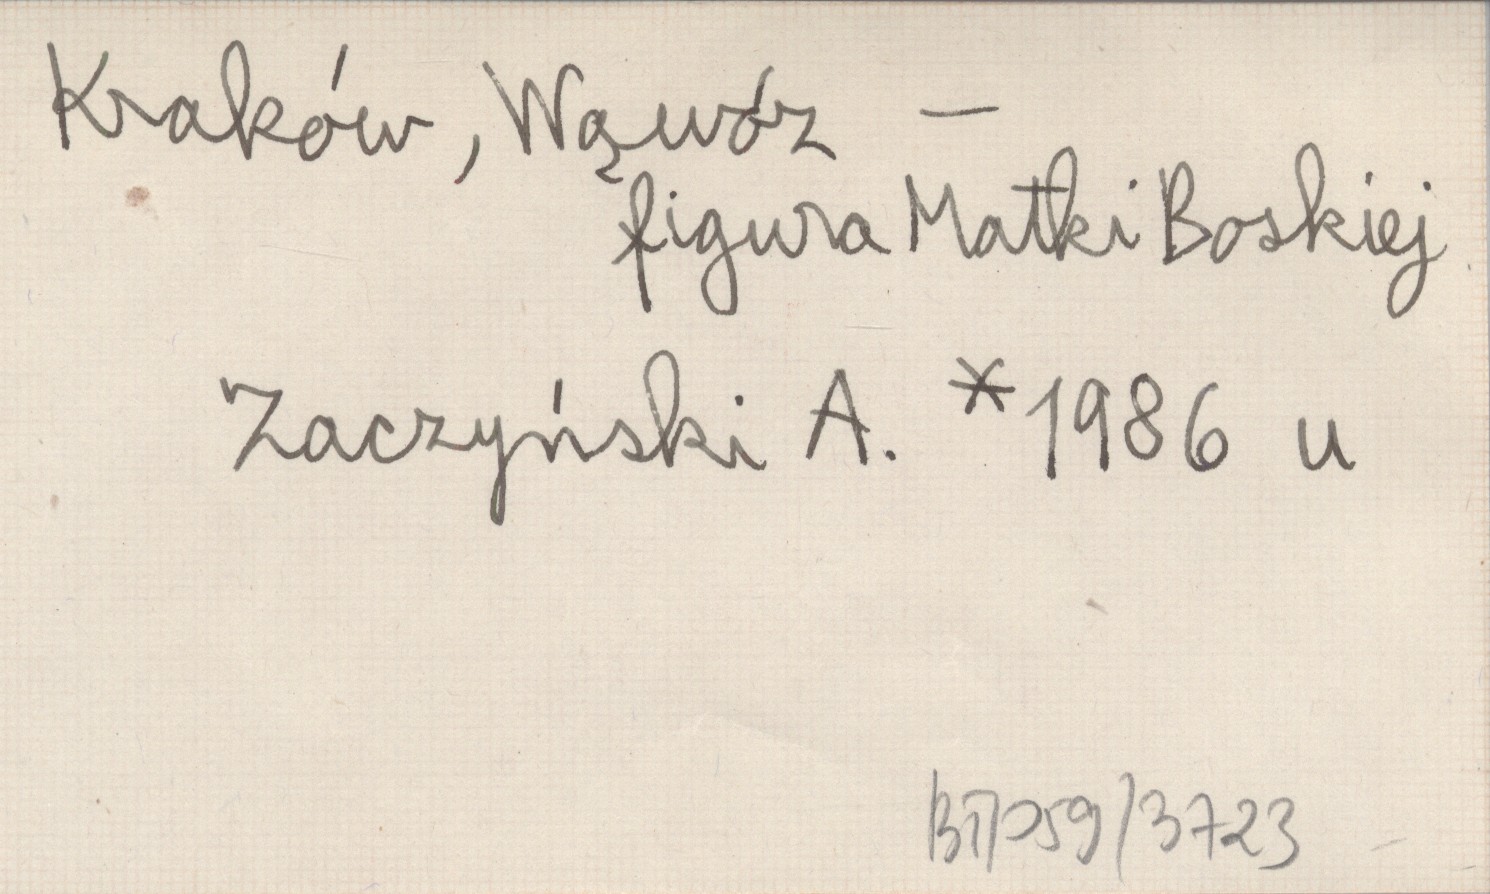 Kraków, Wąwóz —
figura Matki Boskiej
Zaczyński A. *1986 u